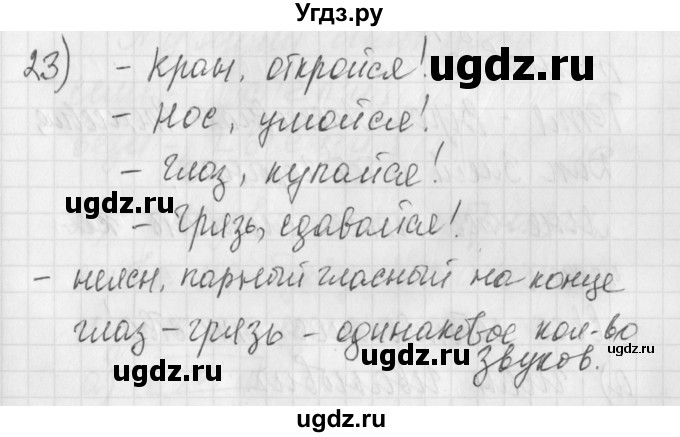 Угдз.ру
23) - Кран, откройся!
ugdz.ru
- Нос, умойся!
- Глаз, купайся!
ugdz.ru
- Грязь, сдавайся!
ugdz.ru
- неясн. парный гласный на конце
глаз - грязь - одинаковое кол-во
звуков.
ugdz.ru
ugdz.ru
ugdz.ru